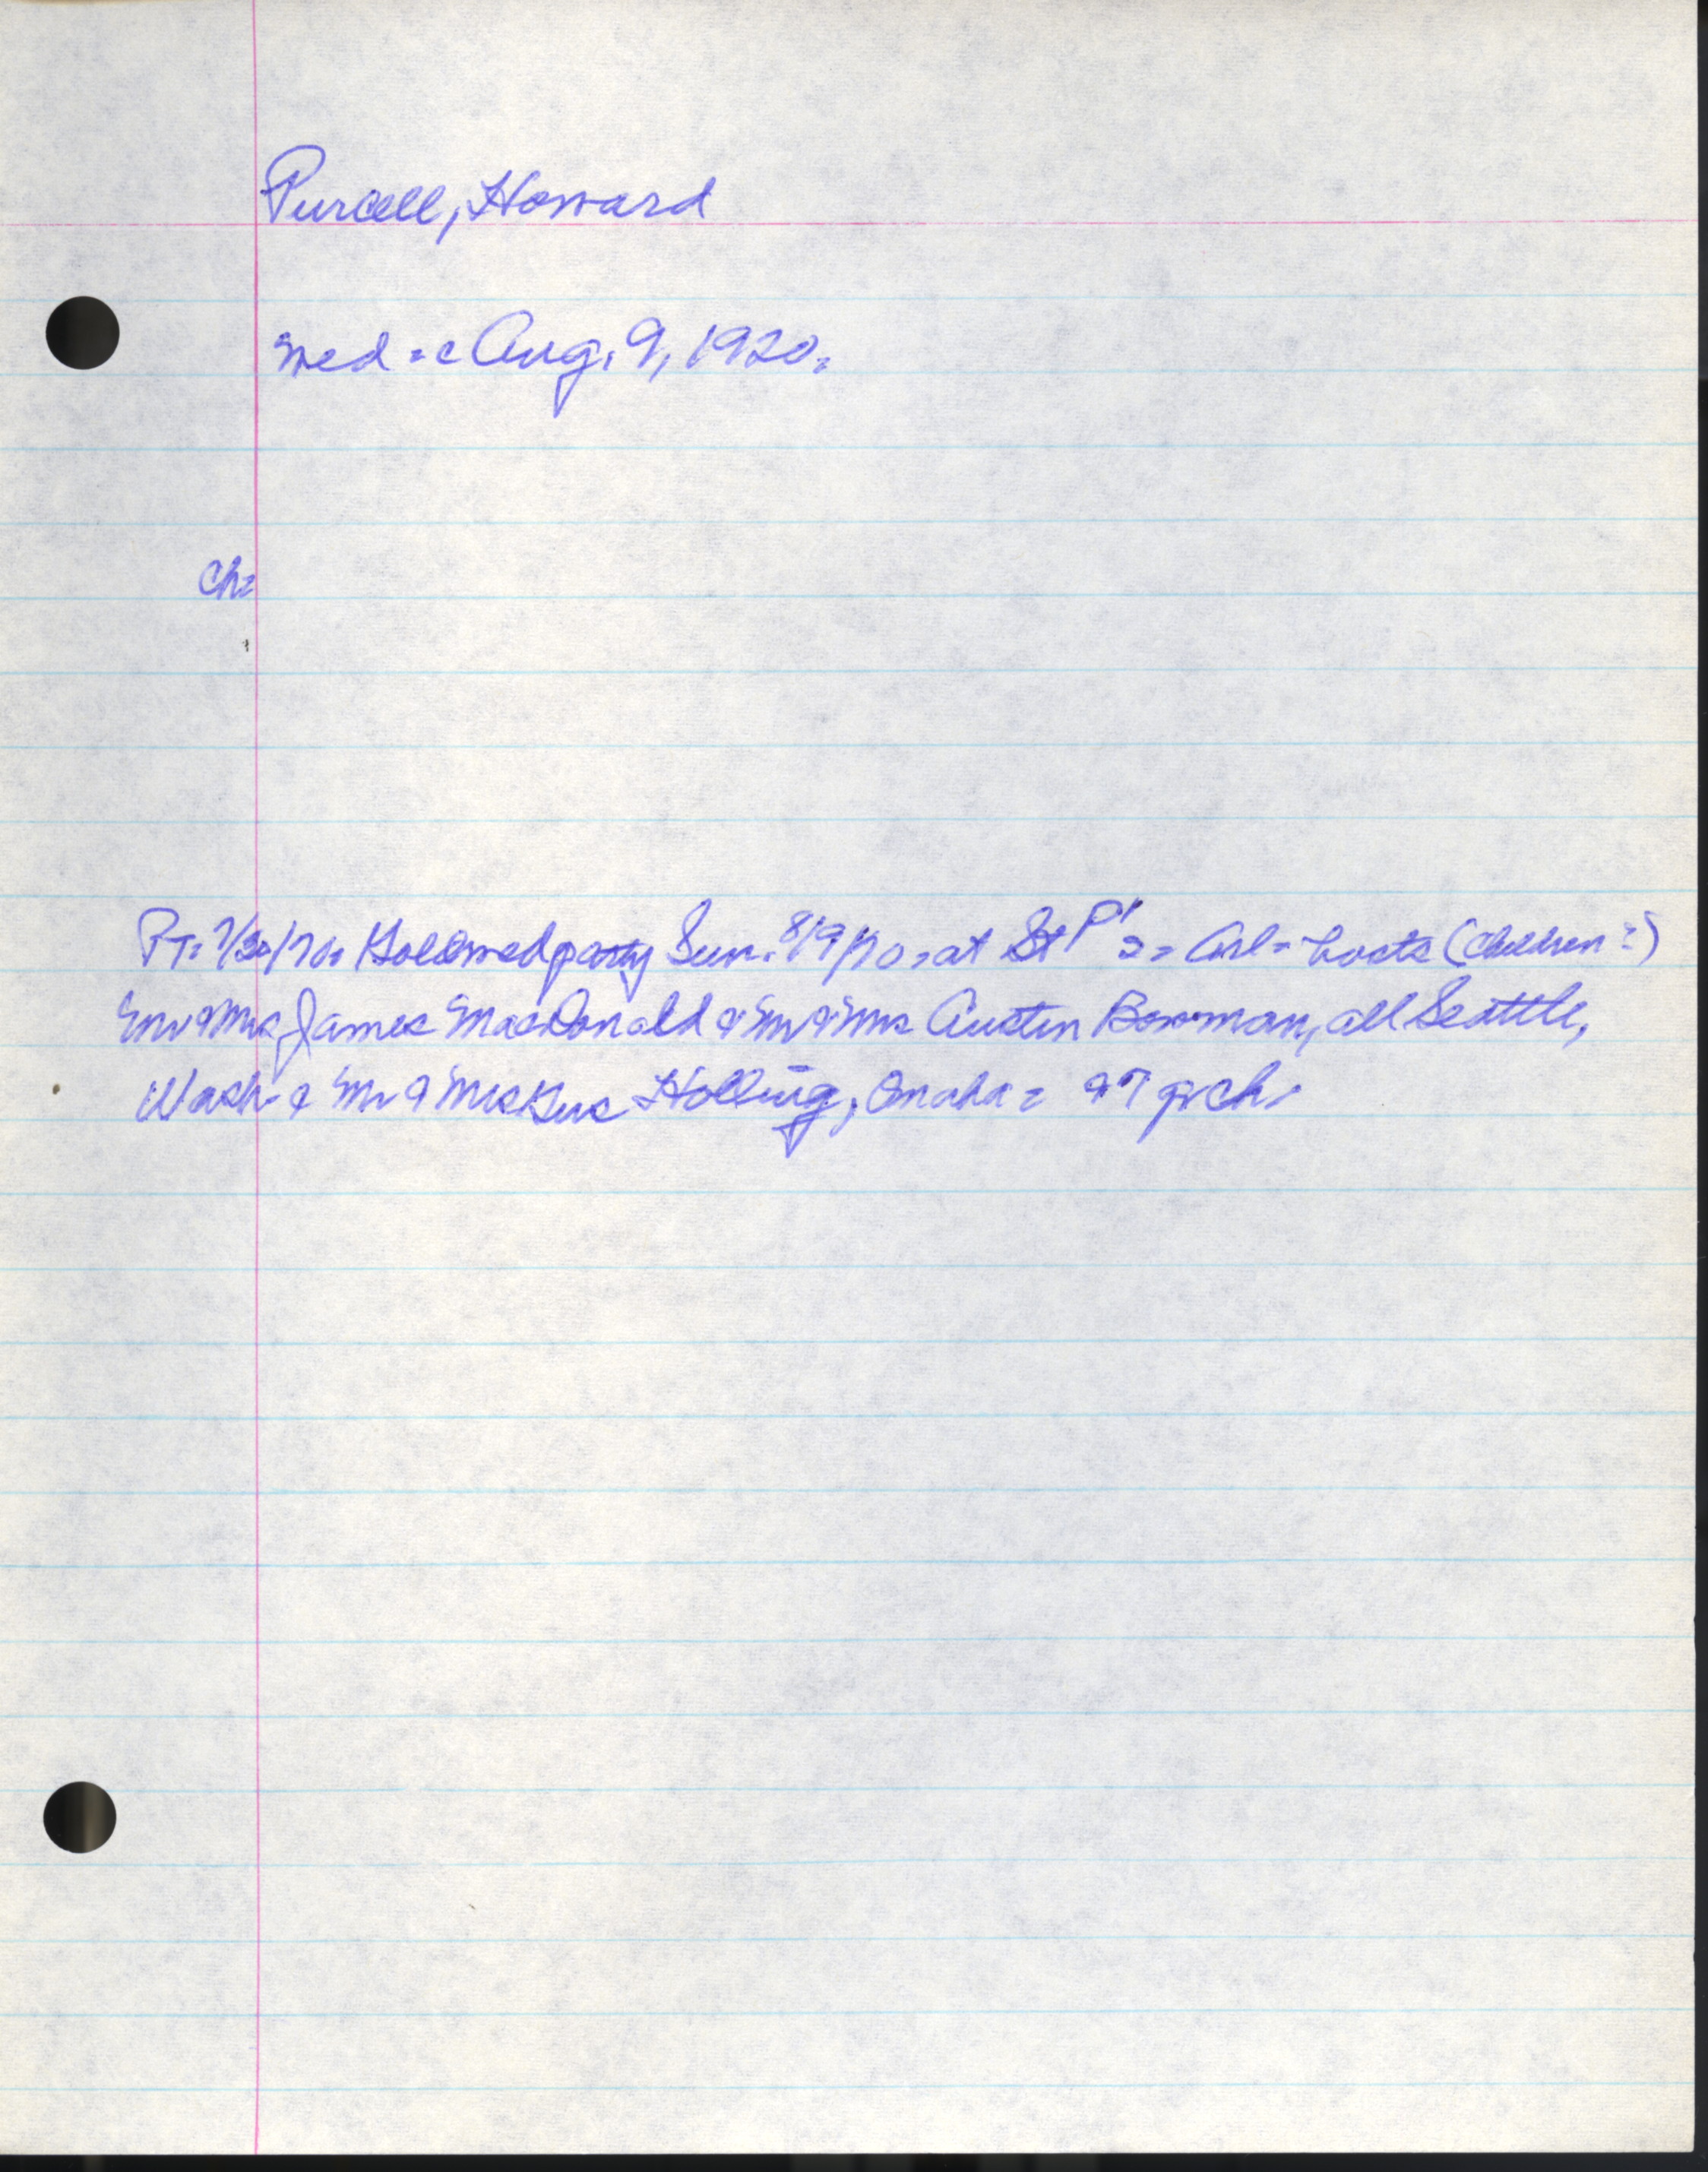 Purcell, Howard
Wed = c Aug. 9, 1920.
Ch=
PT= 7/30/70= Gold wed party Sun. 8/9/70, at St P's = Arl = hosts (children?)
Mr & Mrs James MacDonald & Mr & Mrs Austin Bowman, all Seattle,
Wash & Mr & Mrs Gus Holling, Omaha = 97 gr ch.